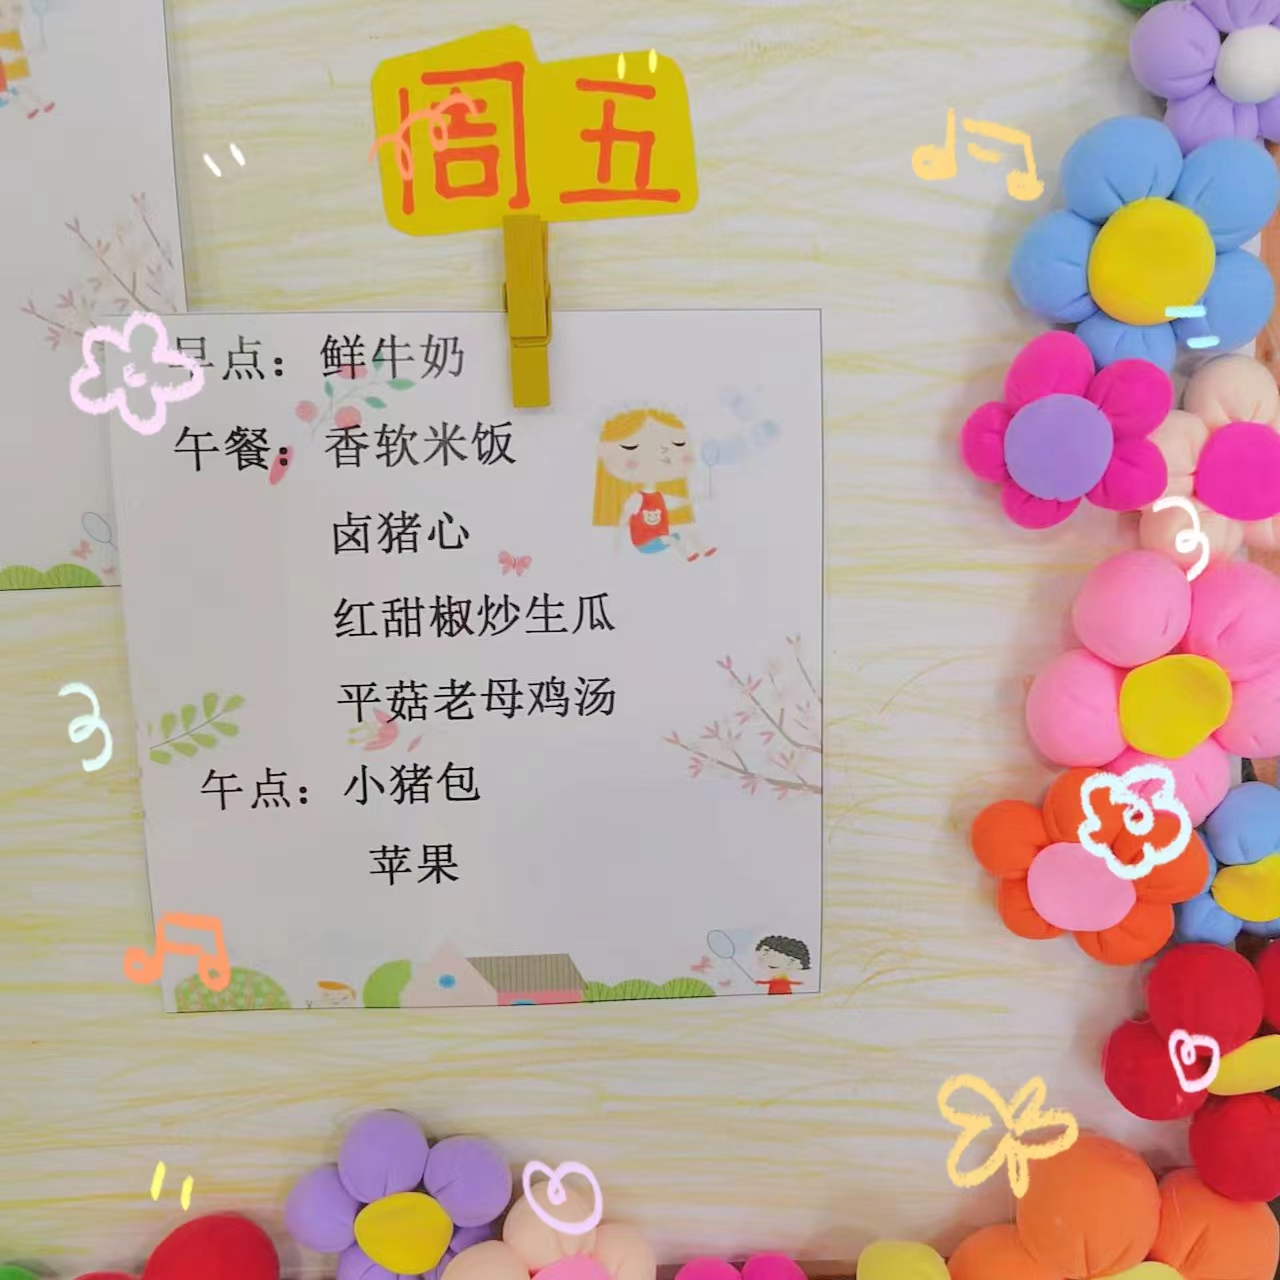 周五
早点：鲜牛奶
午餐：香软米饭
卤猪心
红甜椒炒生瓜
平菇老母鸡汤
午点：小猪包
苹果